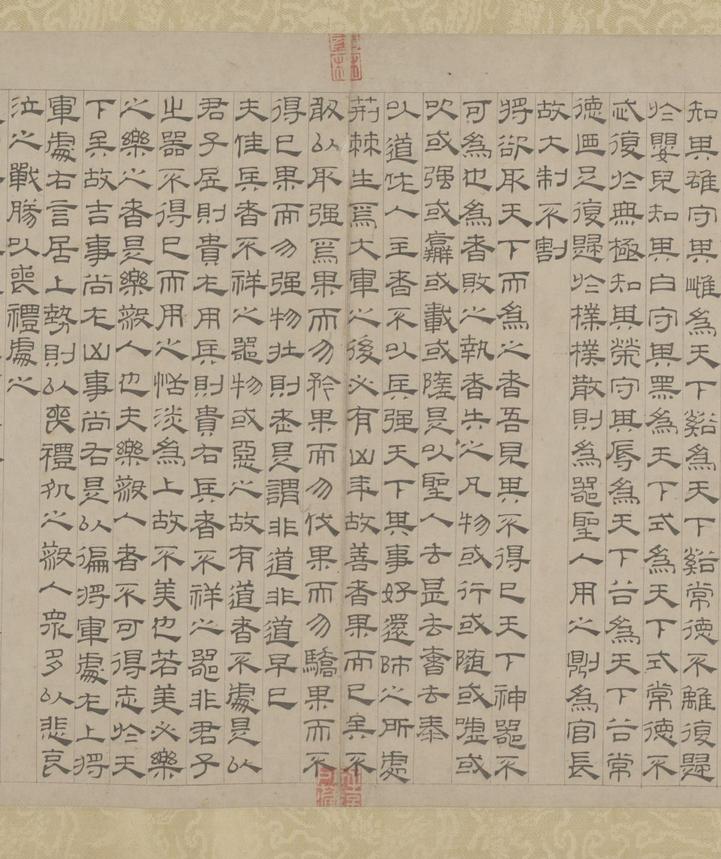 知其雄守其雌為天下谿為天下谿常德不離復歸
於嬰兒知其白守其黑為天下式為天下式常德不
忒復於無極知其榮守其辱為天下谷為天下谷常
德迺足復歸於樸樸散則為器聖人用之則為官長
故大制不割
將欲取天下而為之者吾見其不得已天下神器不
可為也為者敗之執者失之凡物或行或隨或噓或
吹或强或羸或載或隳是以聖人去甚去奢去泰
以道佐人主者不以兵强天下其事好還師之所處
荊棘生焉大軍之後必有凶年故善者果而已矣不
敢以取强焉果而勿矜果而勿伐果而勿驕果而不
得已果而勿强物壯則老是謂非道非道早已
夫佳兵者不祥之器物或惡之故有道者不處是以
君子居則貴左用兵則貴右兵者不祥之器非君子
之器不得已而用之恬淡為上故不美也若美必樂
之樂之者是樂殺人也夫樂殺人者不可得志於天
下矣故吉事尚左凶事尚右是以偏將軍處左上將
軍處右言居上勢則以喪禮之殺人衆多以悲哀
泣之戰勝以喪禮處之